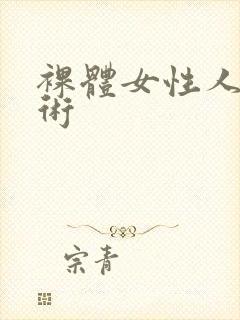 裸體女性人
術
宗青